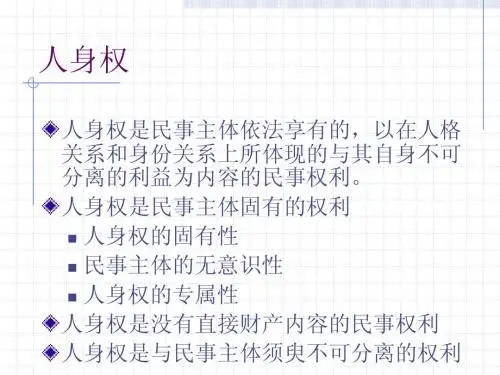 人身权
人身权是民事主体依法享有的，以在人格
关系和身份关系上所体现的与其自身不可
分离的利益为内容的民事权利。
人身权是民事主体固有的权利
人身权的固有性
民事主体的无意识性
人身权的专属性
人身权是没有直接财产内容的民事权利
人身权是与民事主体须臾不可分离的权利